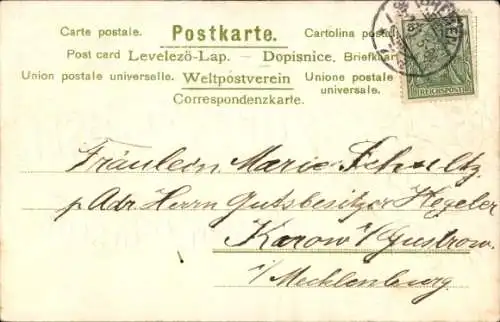 Carte postale. Postkarte. Cartolina postal
Post card Levelező-Lap. — Dopisnice. Briefkaar
Union postale universelle. Weltpostverein Unione postale universale.
Correspondenzkarte.
REICHSPOST
Fräulein Marie Schultz
p Adr. Herrn Gutsbesitzer Hegeler
Karow i/ Gustrow.
i/ Mecklenburg.